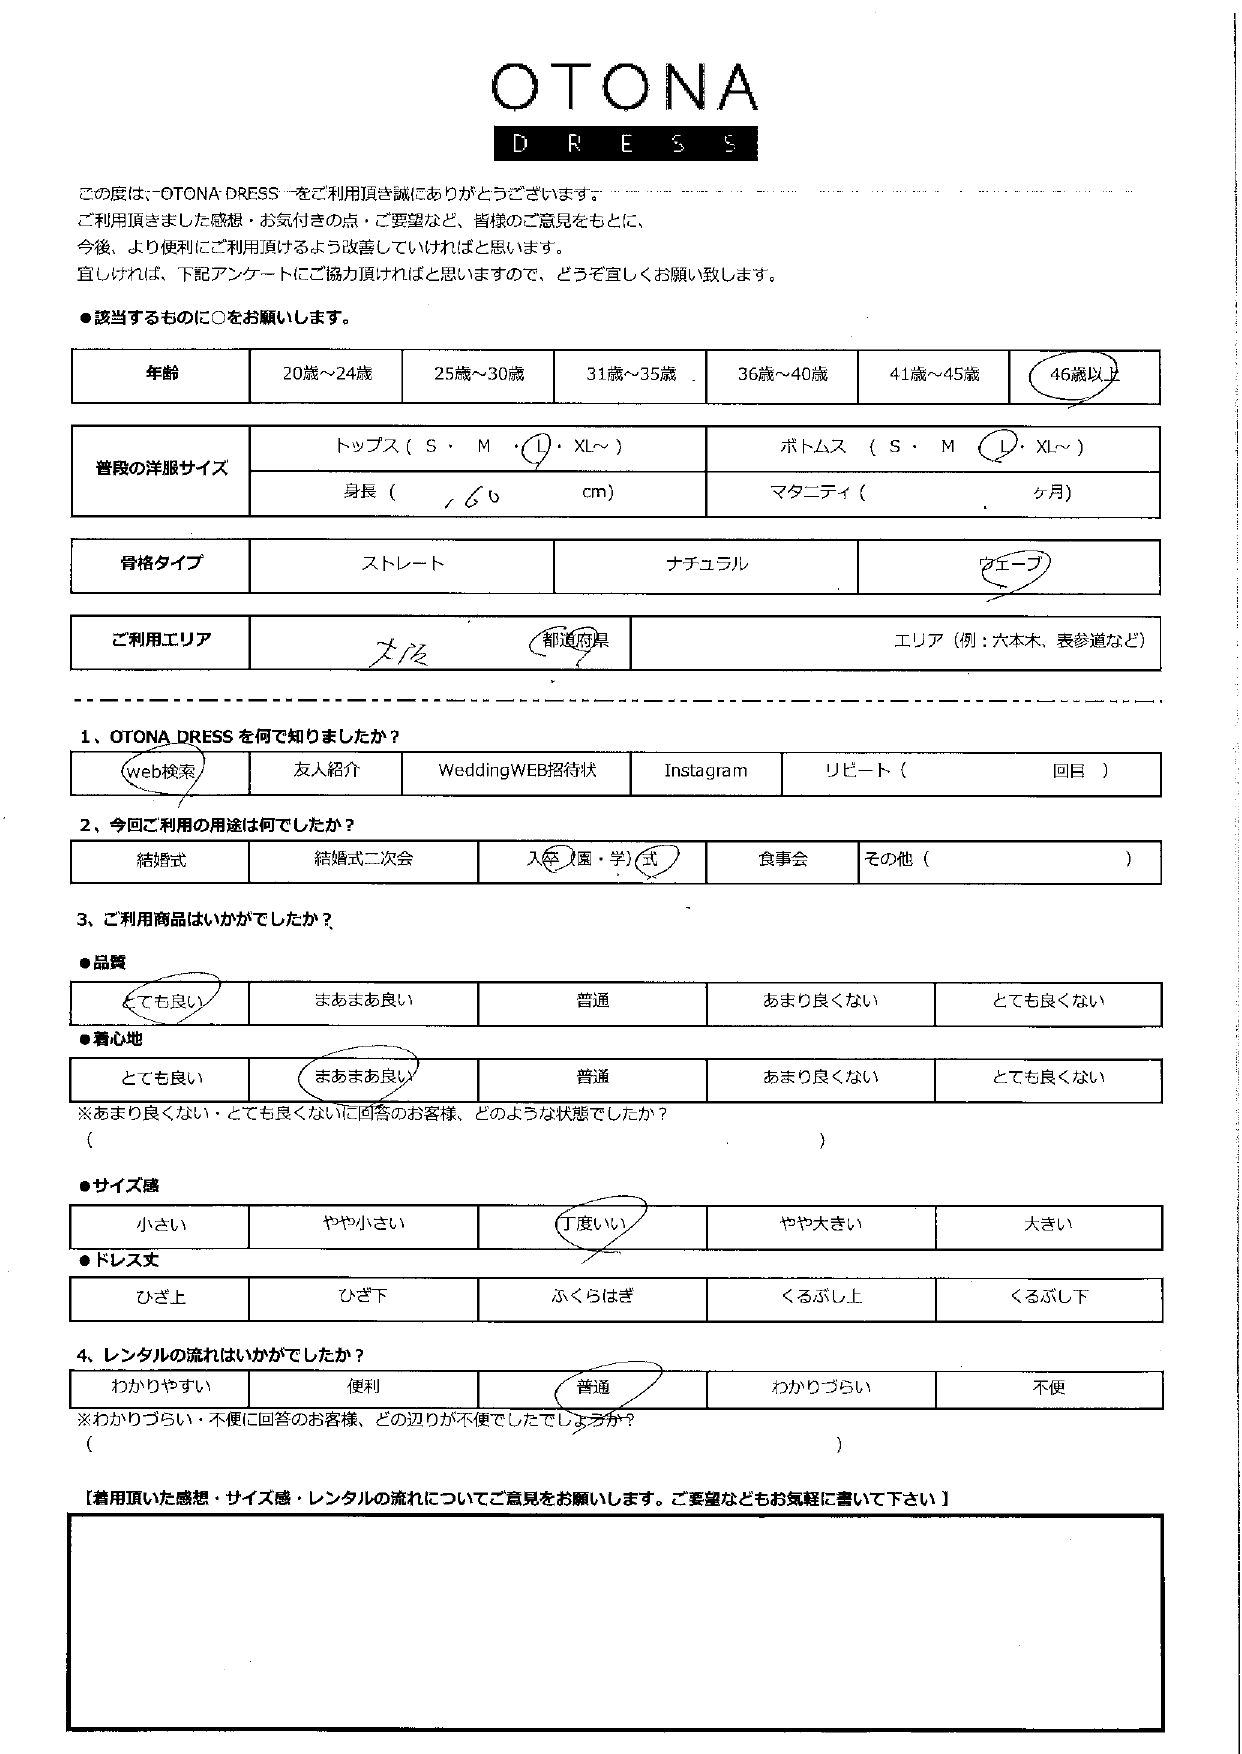 OTONA
DRESS
この度は、OTONA DRESS をご利用頂き誠にありがとうございます。
ご利用頂きました感想・お気付きの点・ご要望など、皆様のご意見をもとに、
今後、より便利にご利用頂けるよう改善していければと思います。
宜しければ、下記アンケートにご協力頂ければと思いますので、どうぞ宜しくお願い致します。
●該当するものに○をお願いします。
年齢 20歳～24歳 25歳～30歳 31歳～35歳 36歳～40歳 41歳～45歳 46歳以上
普段の洋服サイズ トップス ( S ・ M ・ L ・ XL～ ) ボトムス ( S ・ M L ・ XL～ )
身長 ( 160 cm) マタニティ ( ヶ月)
骨格タイプ ストレート ナチュラル ウェーブ
ご利用エリア 大阪 都道府県 エリア（例：六本木、表参道など）
1、OTONA DRESS を何で知りましたか？
web検索 友人紹介 WeddingWEB招待状 Instagram リピート ( 回目 )
2、今回ご利用の用途は何でしたか？
結婚式 結婚式二次会 入卒（園・学）式 食事会 その他 ( )
3、ご利用商品はいかがでしたか？
●品質
とても良い まあまあ良い 普通 あまり良くない とても良くない
●着心地
とても良い まあまあ良い 普通 あまり良くない とても良くない
※あまり良くない・とても良くないに回答のお客様、どのような状態でしたか？
( )
●サイズ感
小さい やや小さい 丁度いい やや大きい 大きい
●ドレス丈
ひざ上 ひざ下 ふくらはぎ くるぶし上 くるぶし下
4、レンタルの流れはいかがでしたか？
わかりやすい 便利 普通 わかりづらい 不便
※わかりづらい・不便に回答のお客様、どの辺りが不便でしたでしょうか？
( )
【着用頂いた感想・サイズ感・レンタルの流れについてご意見をお願いします。ご要望などもお気軽に書いて下さい】